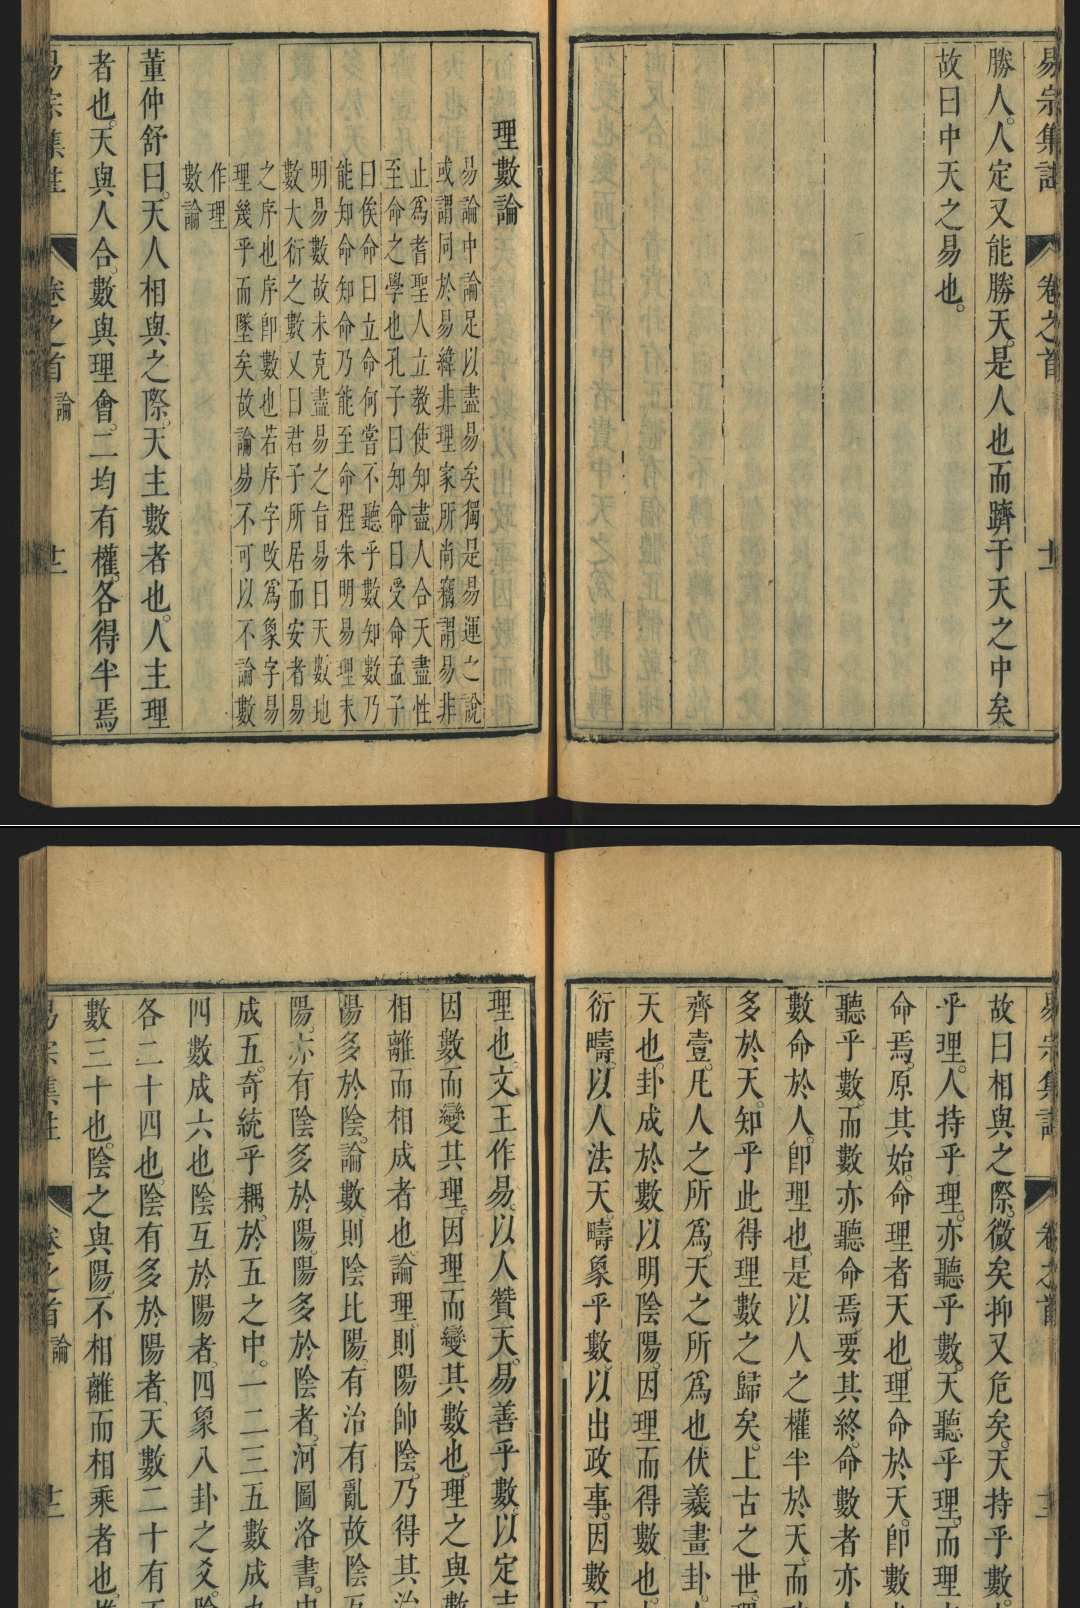 易宗集註 卷之首
勝人。人定又能勝天。是人也而躋于天之中矣
故曰中天之易也。
理數論
易論中論足以盡易矣獨是易運之說
或謂同於易緯非理家所尚竊謂易非
止為耆聖人立教使知盡人合天盡性
至命之學也孔子曰知命曰受命孟子
曰俟命曰立命何嘗不聽乎數知數乃
能知命知命乃能至命程朱明易理未
明易數故未克盡易之旨易曰天數地
數大衍之數又曰君子所居而安者易
之序也序即數也若序字改為象字易
理幾乎而墜矣故論易不可以不論數
作理
數論
董仲舒曰。天人相與之際。天主數者也。人主理
者也。天與人合。數與理會。二均有權。各得半焉
易宗集註 卷之首 論
易宗集註 卷之首
故曰相與之際。微矣抑又危矣。天持乎數
乎理。人持乎理。亦聽乎數。天聽乎理。而理
命焉。原其始。命理者天也。理命於天。即數
聽乎數。而數亦聽命焉。要其終。命數者亦
數命於人。即理也。是以人之權半於天。而
多於天。知乎此得理數之歸矣。上古之世
齊壹。凡人之所為。天之所為也伏羲畫卦
天也。卦成於數以明陰陽。因理而得數也
衍疇。以人法天。疇象乎數。以出政事。因數
理也。文王作易。以人贊天。易善乎數。以定
因數而變其理。因理而變其數也。理之與數
相離而相成者也。論理。則陽帥陰。乃得其治
陽多於陰。論數。則陰比陽。有治有亂故陰
陽。亦有陰多於陽。陽多於陰者。河圖洛書。
成五。奇統乎耦。於五之中。一二三五數成
四數成六也。陰互於陽者。四象八卦之爻
各二十四也。陰有多於陽者、天數二十有
數三十也。陰之與陽。不相離而相乘者也。
易宗集註 卷之首 論